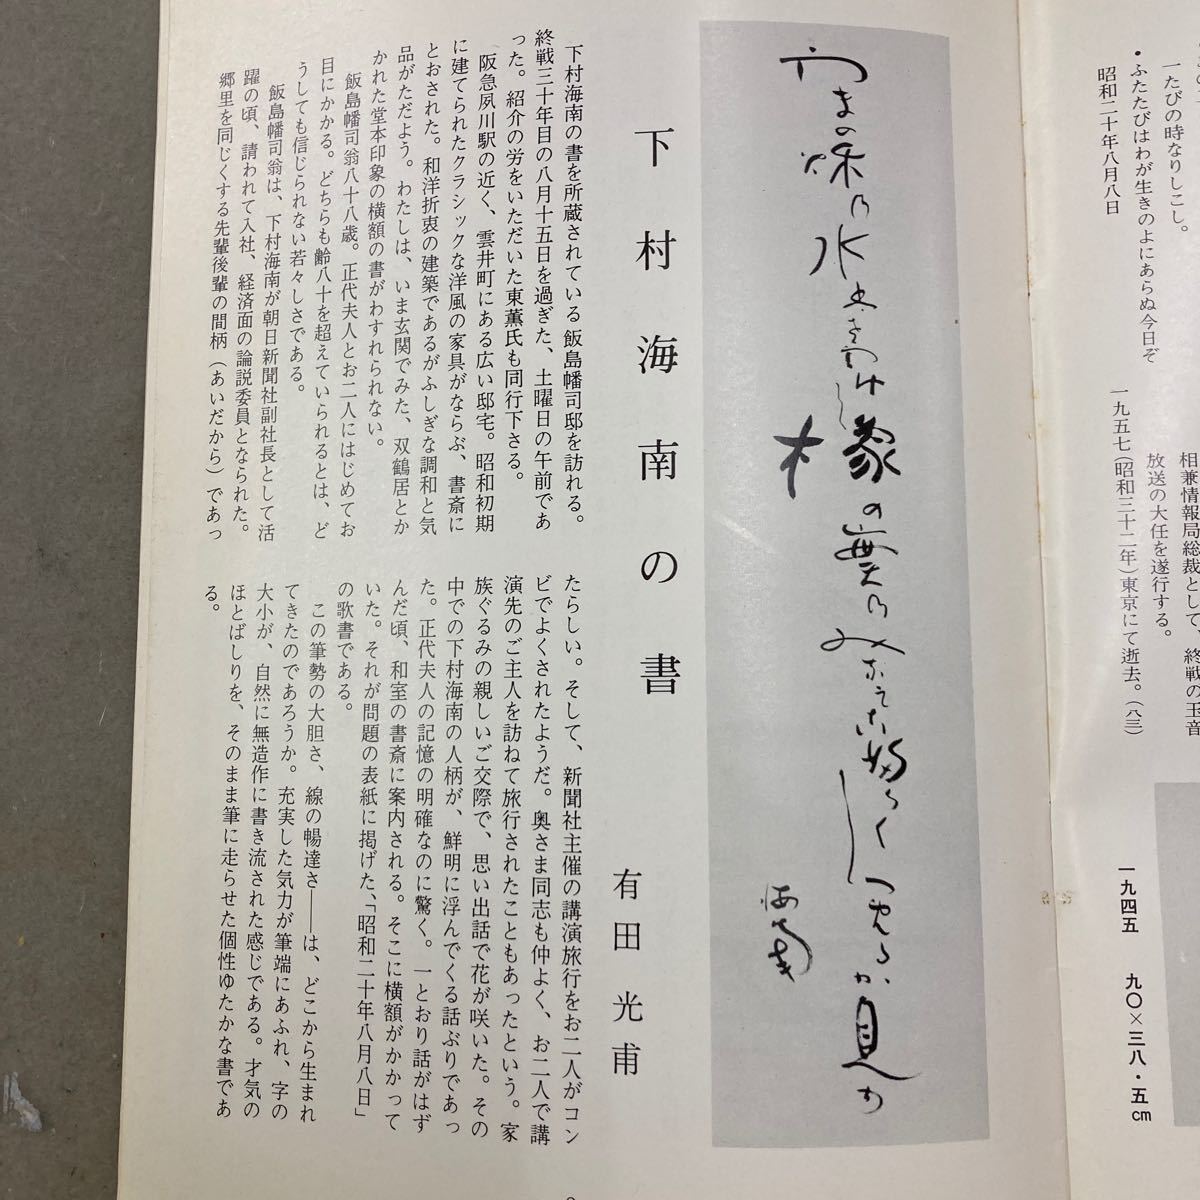 一たびの時なりしこし。
・ふたたびはわが生きのよにあらぬ今日ぞ
昭和二十年八月八日
相兼情報局総裁として、終戦の玉音
放送の大任を遂行する。
一九五七(昭和三十二年)東京にて逝去。(八三)
一九四五　九〇×三八・五cm
海南
下村海南の書
有田光甫
下村海南の書を所蔵されている飯島幡司邸を訪れる。
終戦三十年目の八月十五日を過ぎた、土曜日の午前であ
った。紹介の労をいただいた東薫氏も同行下さる。
阪急夙川駅の近く、雲井町にある広い邸宅。昭和初期
に建てられたクラシックな洋風の家具がならぶ、書斎に
とおされた。和洋折衷の建築であるがふしぎな調和と気
品がただよう。わたしは、いま玄関でみた、双鶴居とか
かれた堂本印象の横額の書がわすれられない。
飯島幡司翁八十八歳。正代夫人とお二人にはじめてお
目にかかる。どちらも齢八十を超えていられるとは、ど
うしても信じられない若々しさである。
飯島幡司翁は、下村海南が朝日新聞社副社長として活
躍の頃、請われて入社、経済面の論説委員となられた。
郷里を同じくする先輩後輩の間柄(あいだから)であっ
たらしい。そして、新聞社主催の講演旅行をお二人がコン
ビでよくされたようだ。奥さま同志も仲よく、お二人で講
演先のご主人を訪ねて旅行されたこともあったという。家
族ぐるみの親しいご交際で、思い出話で花が咲いた。その
中での下村海南の人柄が、鮮明に浮んでくる話ぶりであっ
た。正代夫人の記憶の明確なのに驚く。一とおり話がはず
んだ頃、和室の書斎に案内される。そこに横額がかかって
いた。それが問題の表紙に掲げた、「昭和二十年八月八日」
の歌書である。
この筆勢の大胆さ、線の暢達さ――は、どこから生まれ
てきたのであろうか。充実した気力が筆端にあふれ、字の
大小が、自然に無造作に書き流された感じである。才気の
ほとばしりを、そのまま筆に走らせた個性ゆたかな書であ
る。